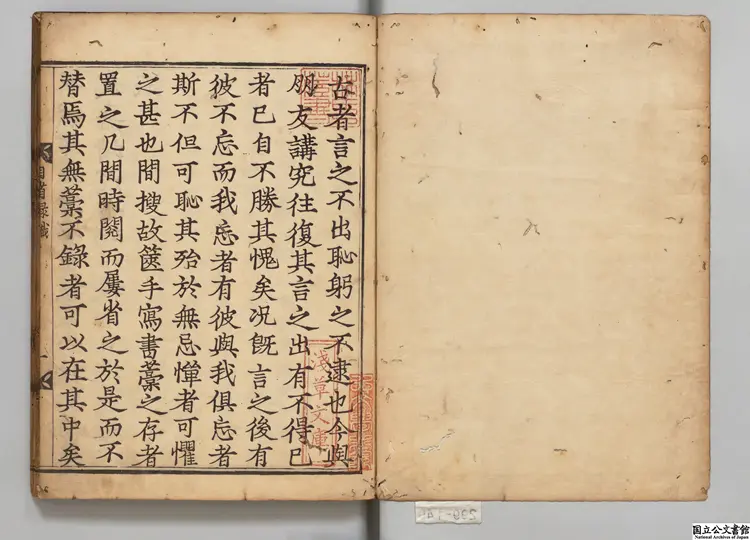 古者言之不出恥躬之不逮也今與
朋友講究往復其言之出有不得已
者已自不勝其愧矣况旣言之後有
彼不忘而我忘者有彼與我俱忘者
斯不但可恥其殆於無忌憚者可懼
之甚也間搜故篋手寫書藁之存者
置之几間時閱而屢省之於是而不
替焉其無藁不錄者可以在其中矣
自省錄
淺草文庫
国立公文書館
National Archives of Japan